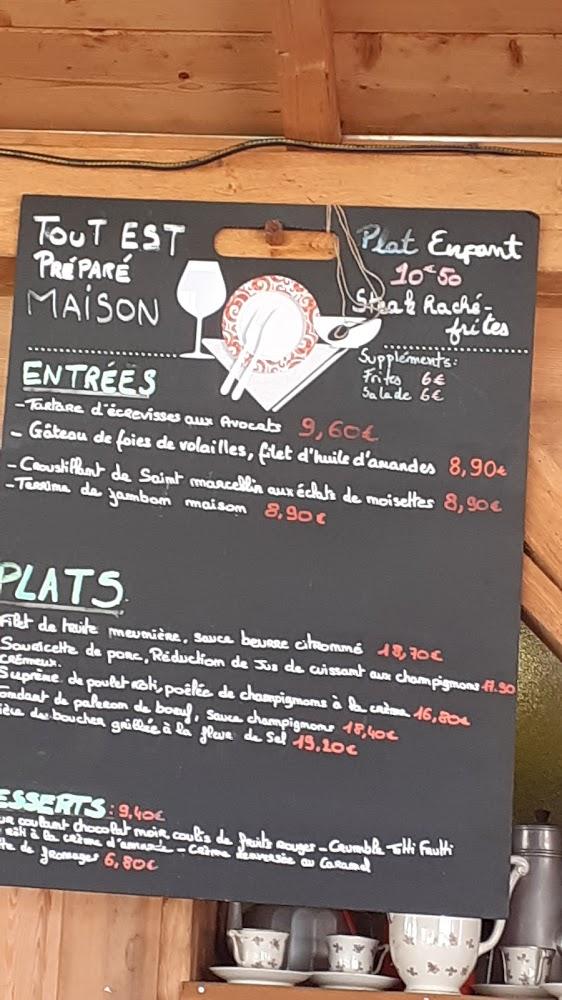 TOUT EST
PRÉPARÉ
MAISON
Plat Enfant
10€50
Steak Haché-
frites
Suppléments:
Frites 6€
Salade 6€
ENTRÉES
- Tartare d'écrevisses aux Avocats 9,60€
- Gâteau de foies de volailles, filet d'huile d'amandes 8,90€
- Croustillant de Saint marcellin aux éclats de noisettes 8,90€
- Terrine de jambon maison 8,90€
PLATS
Filet de truite meunière, sauce beurre citronné 18,70€
Souricette de porc, Réduction de Jus de cuissant aux champignons 17.90
crémeux.
Suprême de poulet rôti, poêlée de champignons à la crème 16,80€
ondant de paleron de boeuf, sauce champignons 18,40€
ière du boucher grillée à la fleur de Sel 19.20€
ESSERTS: 9,40€
ur coulant chocolat noir, coulis de fruits rouges - Crumble Tutti Frutti
rôti à la crème d'amande - Crème renversée au Caramel
te de fromages 6,80€